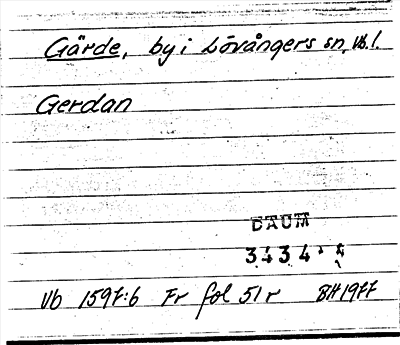 Gärde, by i Lövångers sn, Vb. l.
Gerdan
DAUM
3434
Vb 1597:6 Fr fol 51 r BH 1977